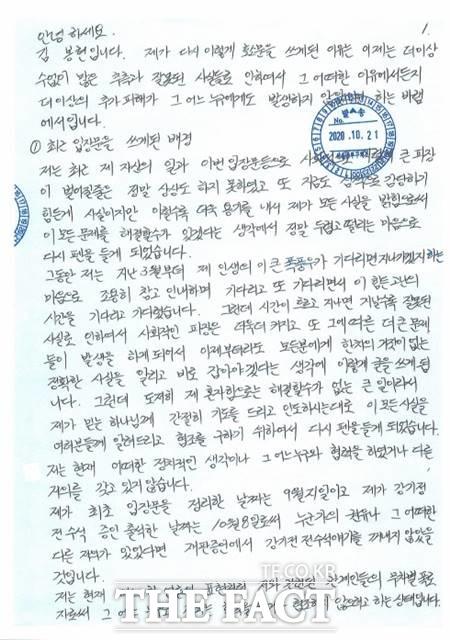 안녕 하세요.
1.
김 봉현입니다. 제가 다시 이렇게 호소문을 쓰게된 이유는 이제는 더이상
수없이 많은 추측과 잘못된 사실들로 인하여서 그 어떠한 이유에서든지
더이상의 추가 피해가 그 어느누구에게도 발생하지 하는 바램
에서입니다.
발송
No.
2020.10.21
① 최근 입장문을 쓰게된 배경
저는 최근 제 자신의 일과 이번 입장문등으로 큰 파장
이 벌어질줄은 정말 상상도 하지 못하였고 또 지금도 감당하기
힘든게 사실이지만 이럴수록 더욱 용기를 내서 제가 모든 사실을 밝힘으로써
이 모든 문제를 해결할수가 있겠다는 생각에서 정말 두렵고 떨리는 마음으로
다시 펜을 들게 되었습니다.
그동안 저는 지난 3월부터 제 인생의 이 큰 폭풍우가 기다리면 지나가겠지 하는
마음으로 조용히 참고 인내하며 기다리고 또 기다리면서 이 힘든 고난의
시간을 기다리고 기다렸습니다. 그런데 시간이 흐르고 지나면 지날수록 잘못된
사실로 인하여서 사회적인 파장은 더욱더 커지고 또 그에 따른 더 큰 문제
들이 발생을 하게 되어서 이제부터라도 모든분에게 한치의 거짓이 없는
정확한 사실을 알리고 바로 잡아야겠다는 생각에 이렇게 글을 쓰게 됩
니다. 그런데 도저히 제 혼자힘으로는 해결할수가 없는 큰 일이라서
제가 믿는 하나님께 간절히 기도를 드리고 인도하시는대로 이 모든 사실을
여러분들게 알려드리고 협조를 구하기 위하여서 다시 펜을 들게 되었습니다.
저는 현재 어떠한 정치적인 생각이나 그 어느누구와 협력을 하였거나 다른
저의를 갖고 있지 않습니다.
제가 최초 입장문을 정리한 날짜는 9월21일이고 제가 강기정
전 수석 증인 출석한 날짜는 10월8일로써 누군가의 회유나 그 어떠한
다른 저의가 있었다면 재판증언에서 강기정 전수석얘기를 꺼내지 않았을
것입니다.
TF.CO.KR
저는 현재 무차별 폭로
THE FACT
자로써 그 협조하지 않으려고 하는 상태입니다.